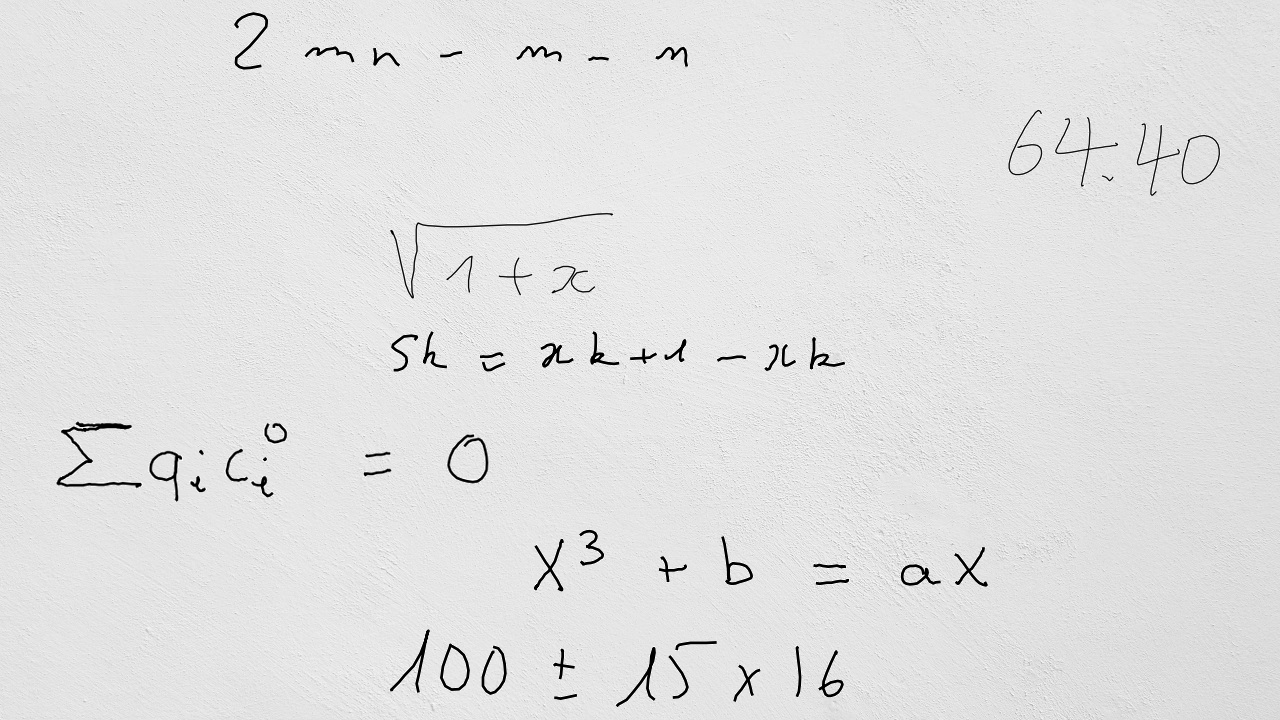 2 mn - m - n
64.40
√(1+x)
sk = xk+1 - xk
∑qᵢcᵢ⁰ = 0
x³ + b = ax
100 ± 15 x 16